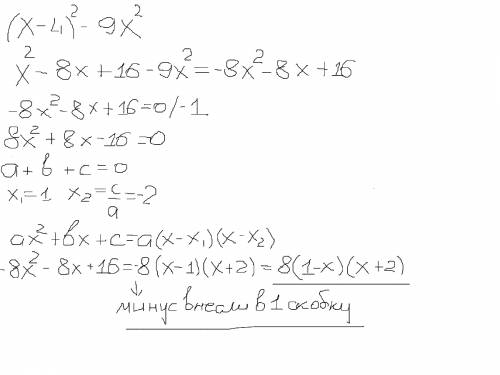 (x-4)² - 9x²
x² - 8x + 16 - 9x² = -8x² - 8x + 16
-8x² - 8x + 16 = 0 / -1
8x² + 8x - 16 = 0
a + b + c = 0
x₁ = 1 x₂ = c/a = -2
ax² + bx + c = a(x - x₁)(x - x₂)
-8x² - 8x + 16 = -8(x-1)(x+2) = 8(1-x)(x+2)
минус внесли в 1 скобку